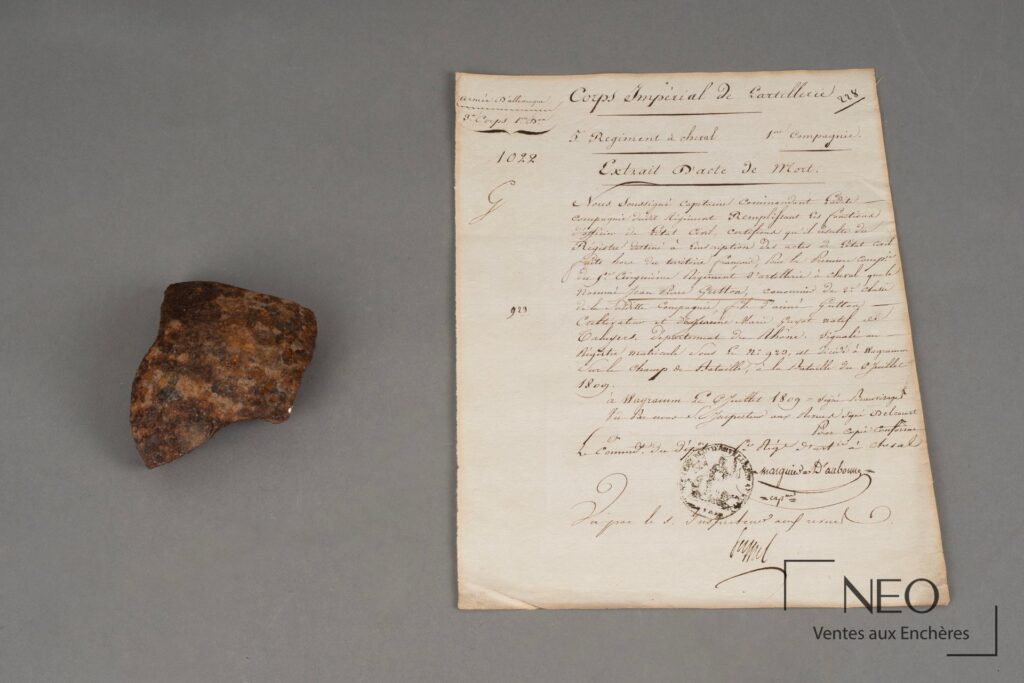 Armée D'allemagne
3e Corps 1re Don
1022
G
923
Corps Impérial de Lartillerie
228
5e Regiment à cheval 1ere Compagnie
Extrait D'acte de Mort.
Nous Soussigné Capitaine Commandant Ladite
Compagnie dudit Régiment Remplissant les fonctions
d'officier de l'état Civil, certifions qu'il résulte du
Registre destiné à L'inscription des actes de l'état civil
faits hors du territoire français, Pour la Premiere Compie
du Sd. Cinquième Regiment D'artillerie à cheval que le
Nommé Jean Pierre Guitton, canonnier de 2e classe
de la Susditte Compagnie, fils D'aimé Guitton
Cultivateur et de Marie natif de
Département du Rhône. Signalé au
Régistre matricule sous le No. 923, est décédé à Wagramm
Sur le Champ de Bataille, à la Bataille du 6 Juillet
1809.
à Wagramm le 6 Juillet 1809 = Signé
Vu Par nous S. Inspecteur aux Revues Signé Delcourt
Pour copie Conforme
Le Command. du Dépôt du 5e Régt. d'Artie à cheval
D'aubonne
capne
Vu par le s. Inspecteur aux revues
NEO
Ventes aux Enchères